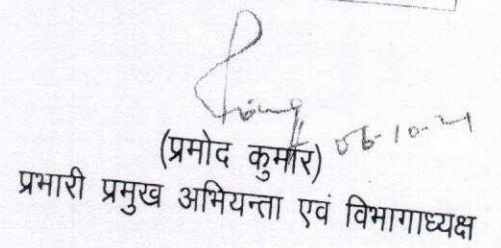 06-10-21
(प्रमोद कुमार)
प्रभारी प्रमुख अभियन्ता एवं विभागाध्यक्ष